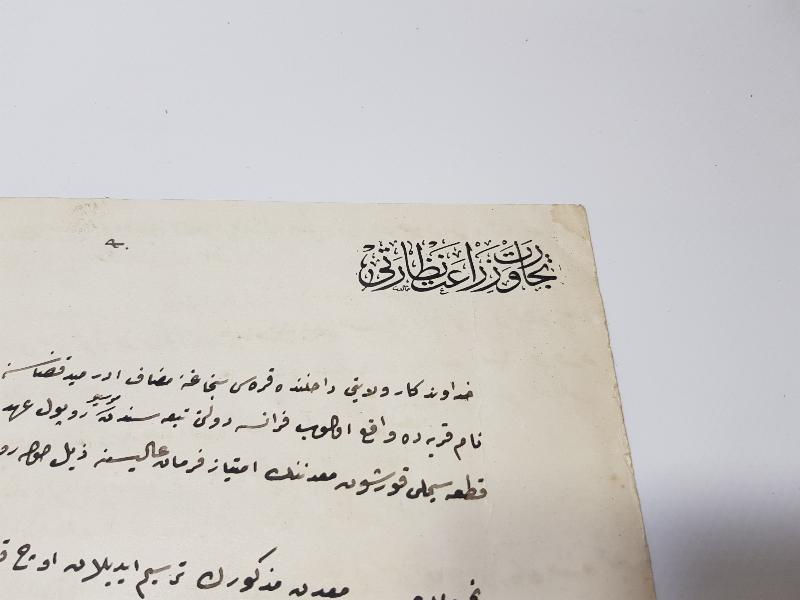 تجارت وزراعت نظارتی
خداوندکار ولایتی داخلنده قره‌سی سنجاغنه مضاف ادرمید قضاسنه
نام قریه ده واقع اولوب فرانسه دولتی تبعه سندن موسیو
قطعه سیملی قورشون معدننك امتیاز فرمان عالیسنه ذیل
معدن مذکورك ترسیم ایدیلان اوچ